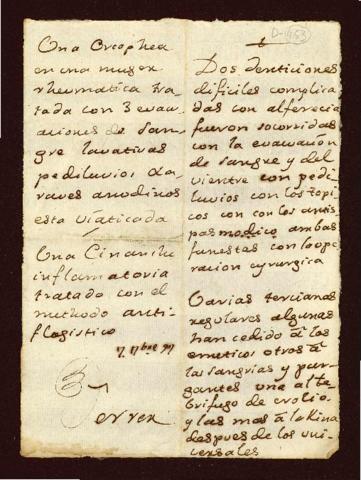 Una Orcophea
en una muger
rheumatica tra
tada con 3 evacu
aciones de San
gre lavativas
pediluvios Xa
raves anodinos
esta viaticada
Una Cinanche
inflamatoria
tratado con el
methodo anti
flogistico
7. 17bre 97
Ferrer
D-453
Dos denticiones
dificiles complica
das con alferecia
fueron socorridas
con la evacuacion
de sangre y del
vientre con pedi
luvios con los topi
cos con con los antis
pasmodico ambas
funestas con loope
racion cyrurgica
Varias tercianas
regulares algunas
han cedido à los
emeticos otros à
las sangrias y pur
gantes una al fe
brifugo de crolio
y las mas à la kina
despues de los uni
versales